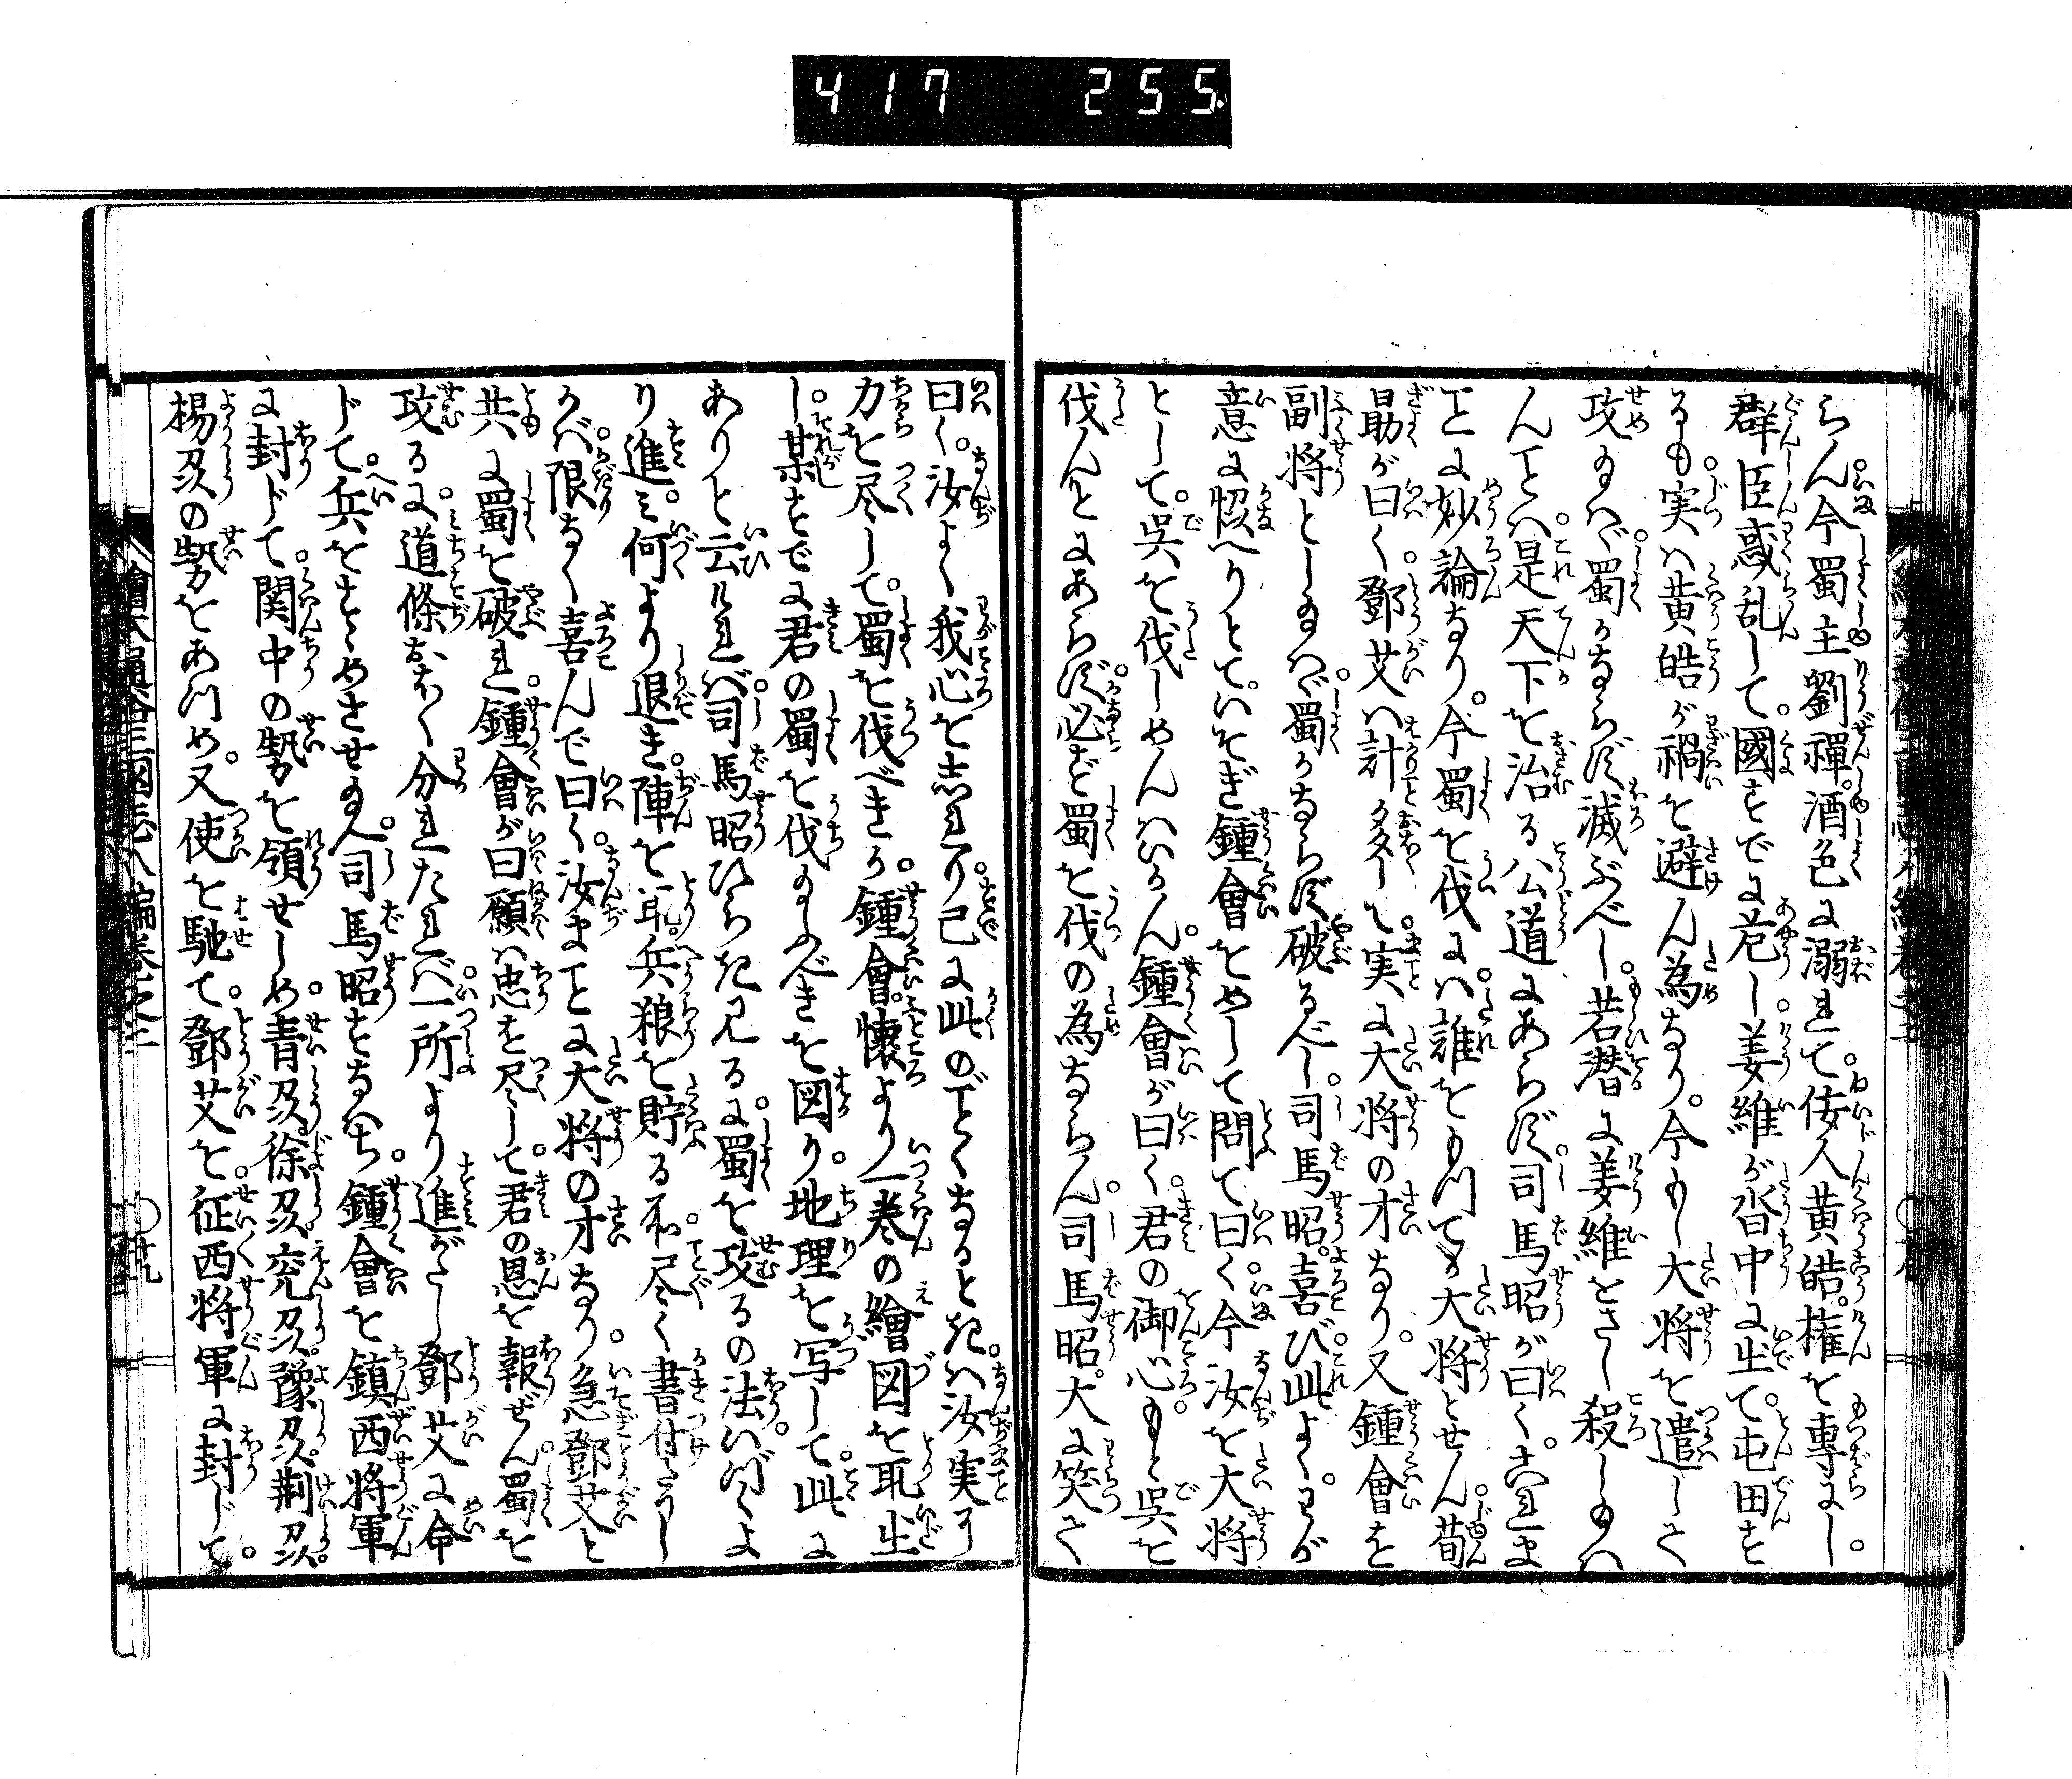 417 255.
らん。今蜀主劉禪。酒色に溺れて。佞人黄皓。権を専にし。
群臣惑乱して。國すでに危し。姜維が沓中に出て。屯田を
るも。実は黄皓が禍を避ん為なり。今もし大将を遣して
攻めバ。蜀かならず滅ぶべし。若潜に姜維をさし殺し給ハ
んことハ。是天下を治る公道にあらず。司馬昭が曰く。まこ
とに妙論なり。今蜀を伐にハ。誰をもつてか大将とせん。荀
勗が曰く。鄧艾ハ計多して。実に大将の才なり。又鍾會を
副将とし給ハヾ。蜀かならず破るべし。司馬昭。喜び。此よく。わが
意に愜へりとて。いそぎ鍾會をめして問て曰く。今汝を大将
として。呉を伐しめんハいかん。鍾會が曰く。君の御心もと呉を
伐んとにあらず。必ず蜀を伐の為ならん。司馬昭。大に笑て
曰く。汝よく我心を志れり。已に此のごとくなるときハ。汝実に
力を尽して。蜀を伐べきか。鍾會。懐より一巻の繪図を取出
し。某すでに君の蜀を伐給ふべきを図り。地理を写して。此に
ありと云けれバ。司馬昭ひらき見るに。蜀を攻るの法。いづくよ
り進み。何より退き。陣を取。兵粮を貯る所。尽く書付たりし
かバ。限なく喜んで曰く。汝まことに大将の才なり。急鄧艾と
共に蜀を破れ。鍾會が曰願ハ忠を尽して。君の恩を報ぜん。蜀を
攻るに。道條おほく分れたれバ。一所より進がたし鄧艾に命
じて。兵をすゝめさせ給へ。司馬昭すなハち。鍾會を鎮西将軍
に封じて。関中の勢を領せしめ。青州。徐州。兗州。豫州。荊州。
楊州の勢をあつめ。又使を馳て。鄧艾を。征西将軍に封じて。
繪本通俗三國志八編巻之二
○廿九